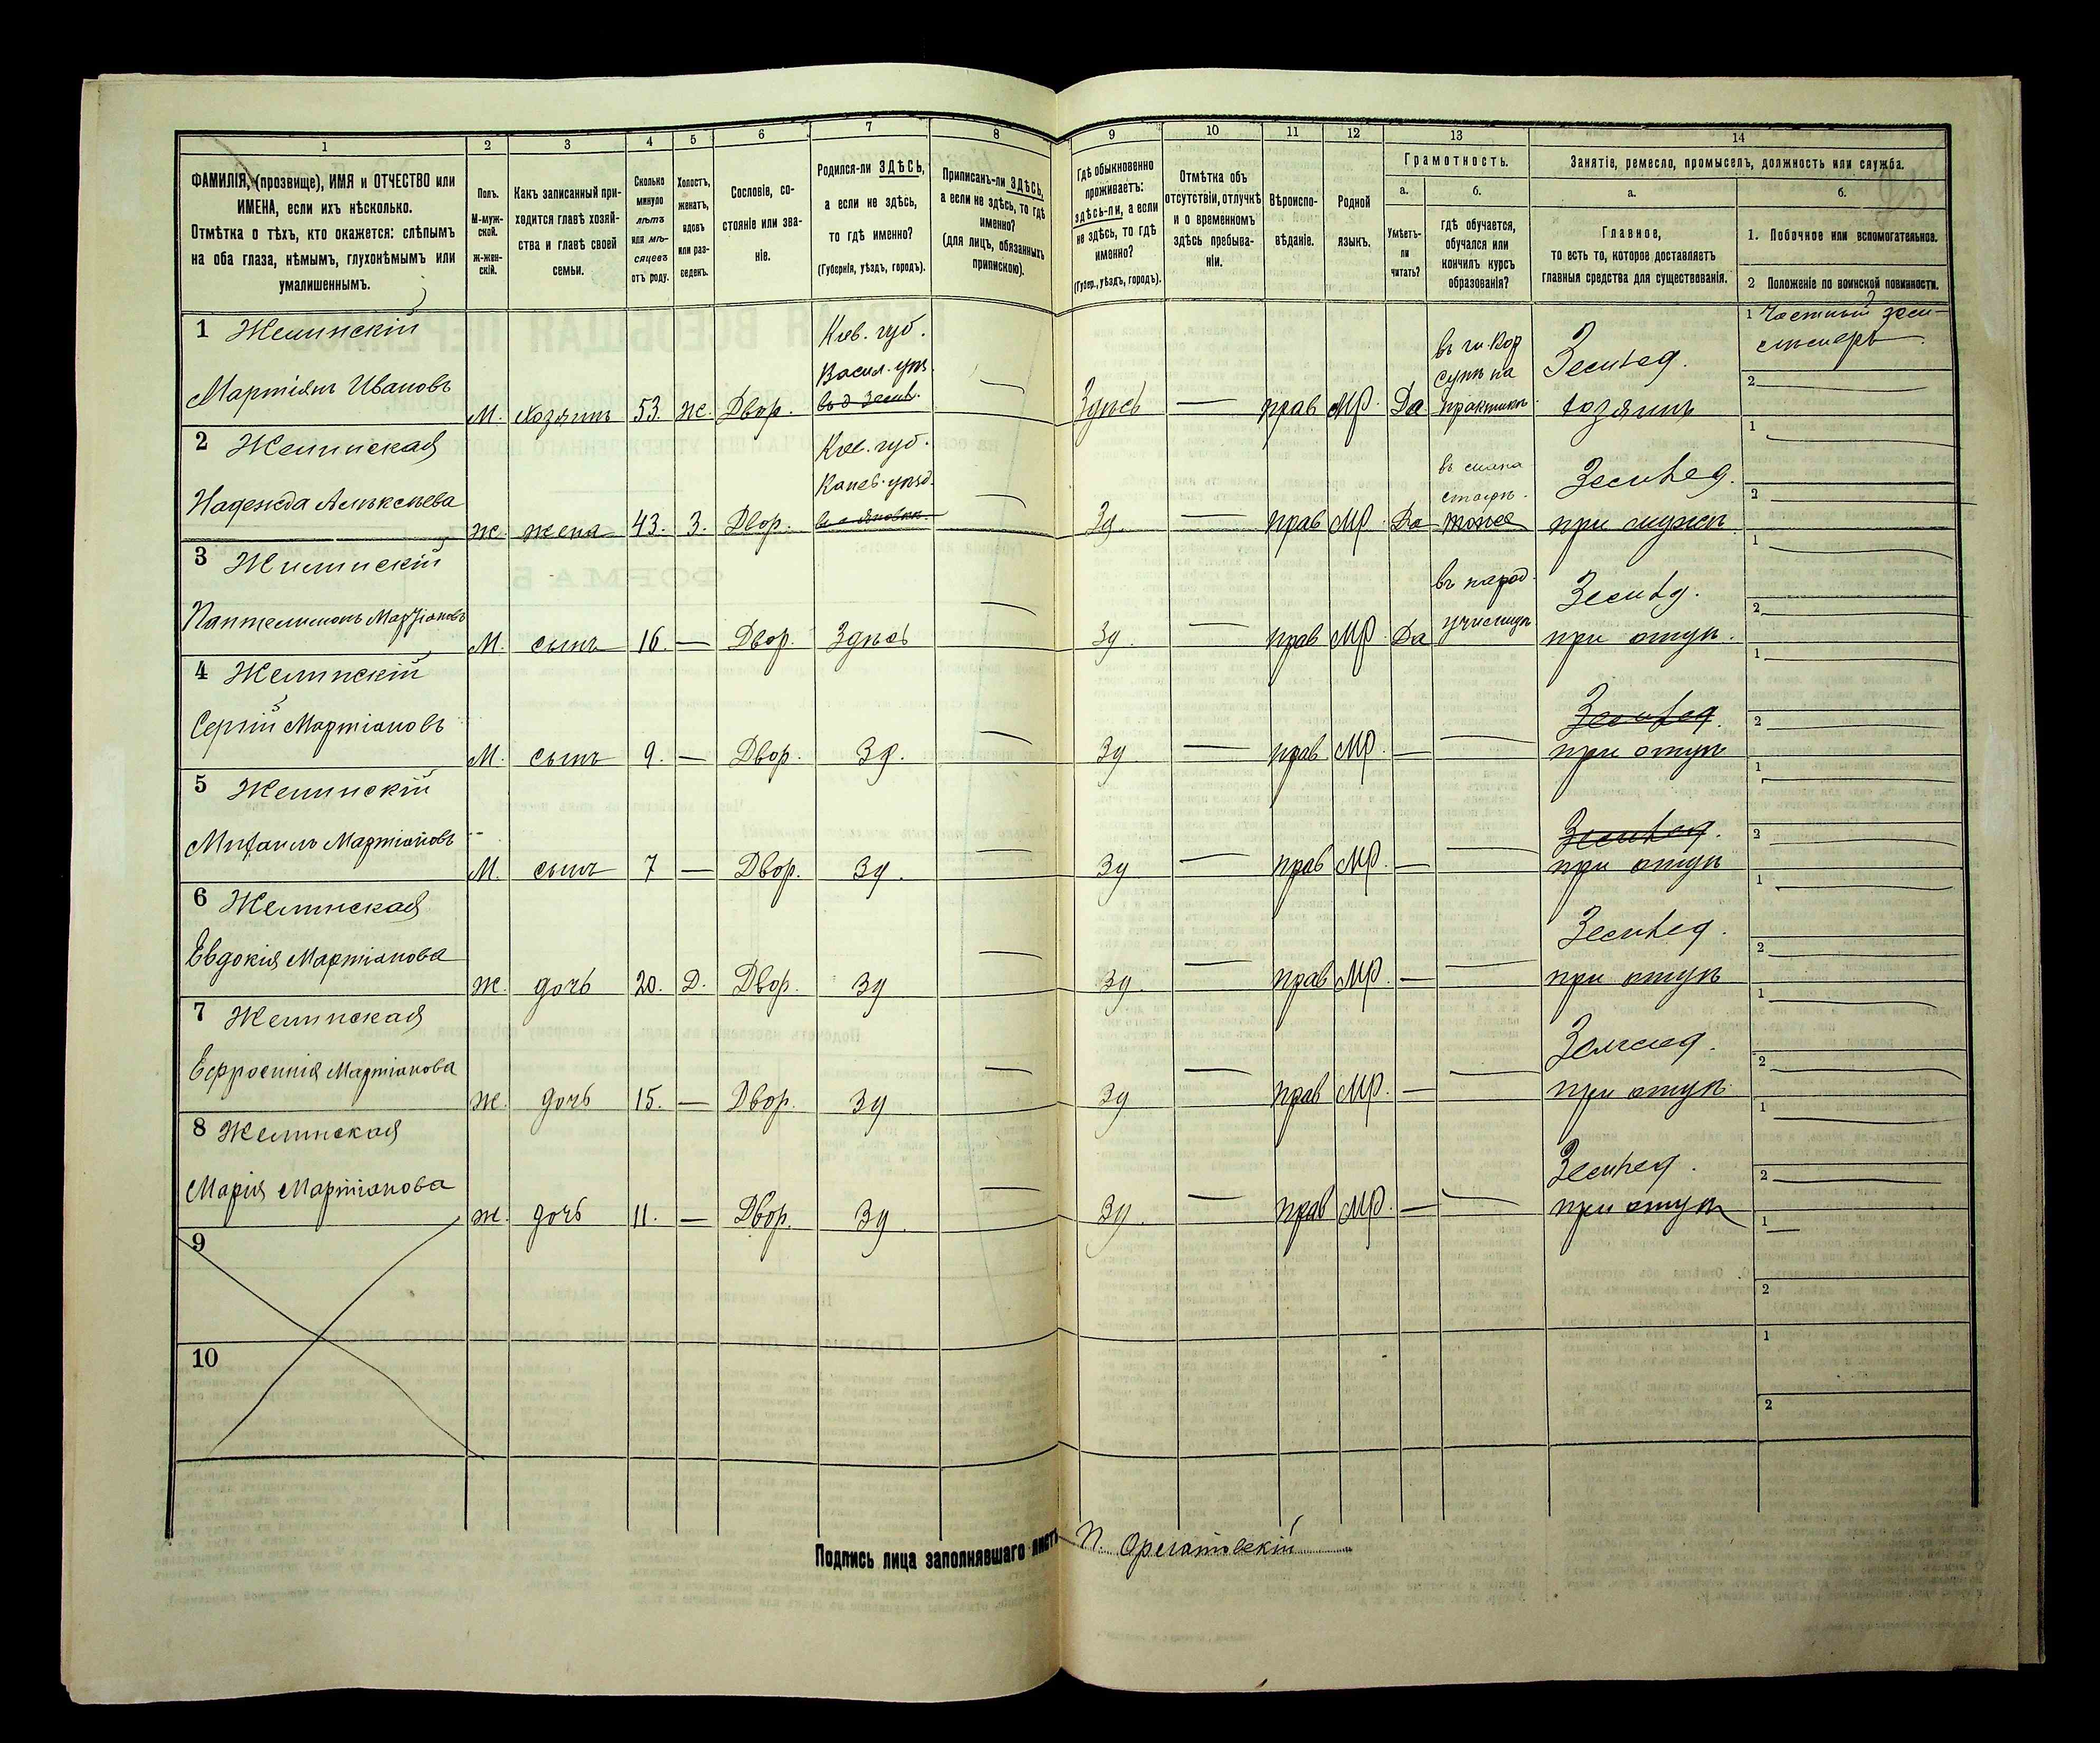 1
2
3
4
5
6
7
8
9
10
11
12
13
14
ФАМИЛІЯ, (прозвище), ИМЯ и ОТЧЕСТВО или
ИМЕНА, если ихъ нѣсколько.
Отмѣтка о тѣхъ, кто окажется: слѣпымъ
на оба глаза, нѣмымъ, глухонѣмымъ или
умалишеннымъ.
Полъ.
М-муж-
ской.
Ж-жен-
скій.
Какъ записанный при-
ходится главѣ хозяй-
ства и главѣ своей
семьи.
Сколько
минуло
лѣтъ
или мѣ-
сяцевъ
отъ роду.
Холостъ,
женатъ,
вдовъ
или раз-
веденъ.
Сословіе, со-
стояніе или зва-
ніе.
Родился-ли ЗДѢСЬ,
а если не здѣсь,
то гдѣ именно?
(Губернія, уѣздъ, городъ).
Приписанъ-ли ЗДѢСЬ,
а если не здѣсь, то гдѣ
именно?
(для лицъ, обязанныхъ
припискою).
Гдѣ обыкновенно
проживаетъ:
здѣсь-ли, а если
не здѣсь, то гдѣ
именно?
(Губер., уѣздъ, городъ).
Отмѣтка объ
отсутствіи, отлучкѣ
и о временномъ
здѣсь пребыва-
ніи.
Вѣроиспо-
вѣданіе.
Родной
языкъ.
Грамотность.
а.
Умѣетъ-
ли
читать?
б.
гдѣ обучается,
обучался или
кончилъ курсъ
образованія?
Занятіе, ремесло, промыселъ, должность или служба.
а.
Главное,
то есть то, которое доставляетъ
главныя средства для существованія.
б.
1. Побочное или вспомогательное.
2 Положеніе по воинской повинности.
1 Желинскій
Мартіянъ Ивановъ
М. Хозяинъ 53. Ж. Двор.
Кіев. губ.
Васил. уѣз.
Здѣсь — прав МР. Да
практик.
Землед.
хозяинъ
1 Частный зем-
2
2 Желинская
Надежда Алексѣева
Ж. жена 43. З. Двор.
Кіев. губ.
Канев. уѣзд.
Зд. — прав МР. Да тоже
Землед.
при мужѣ
1
2
3 Желинскій
Пантелимонъ Мартіановъ
М. сынъ 16. — Двор. Здѣсь
Зд. — прав МР. Да
въ народ.
училищѣ
Землед.
при отцѣ.
1
2
4 Желинскій
Сергій Мартіановъ
М. сынъ 9. — Двор. Зд.
Зд — прав МР. —
Землед.
при отцѣ
1
2
5 Желинскій
Михаилъ Мартіановъ
М. сынъ 7 — Двор. Зд.
Зд — прав МР. —
Землед.
при отцѣ
1
2
6 Желинская
Евдокія Мартіанова
Ж. дочь 20. Д. Двор. Зд
Зд. — прав МР. —
Землед.
при отцѣ
1
2
7 Желинская
Ефросинія Мартіанова
Ж. дочь 15. — Двор. Зд
Зд — прав МР. —
Землед.
при отцѣ
1
2
8 Желинская
Марія Мартіанова
Ж. дочь 11. — Двор. Зд.
Зд. — прав МР. —
Землед.
при отцѣ
1
2
9
1
2
10
1
2
Подпись лица заполнявшаго листъ П.